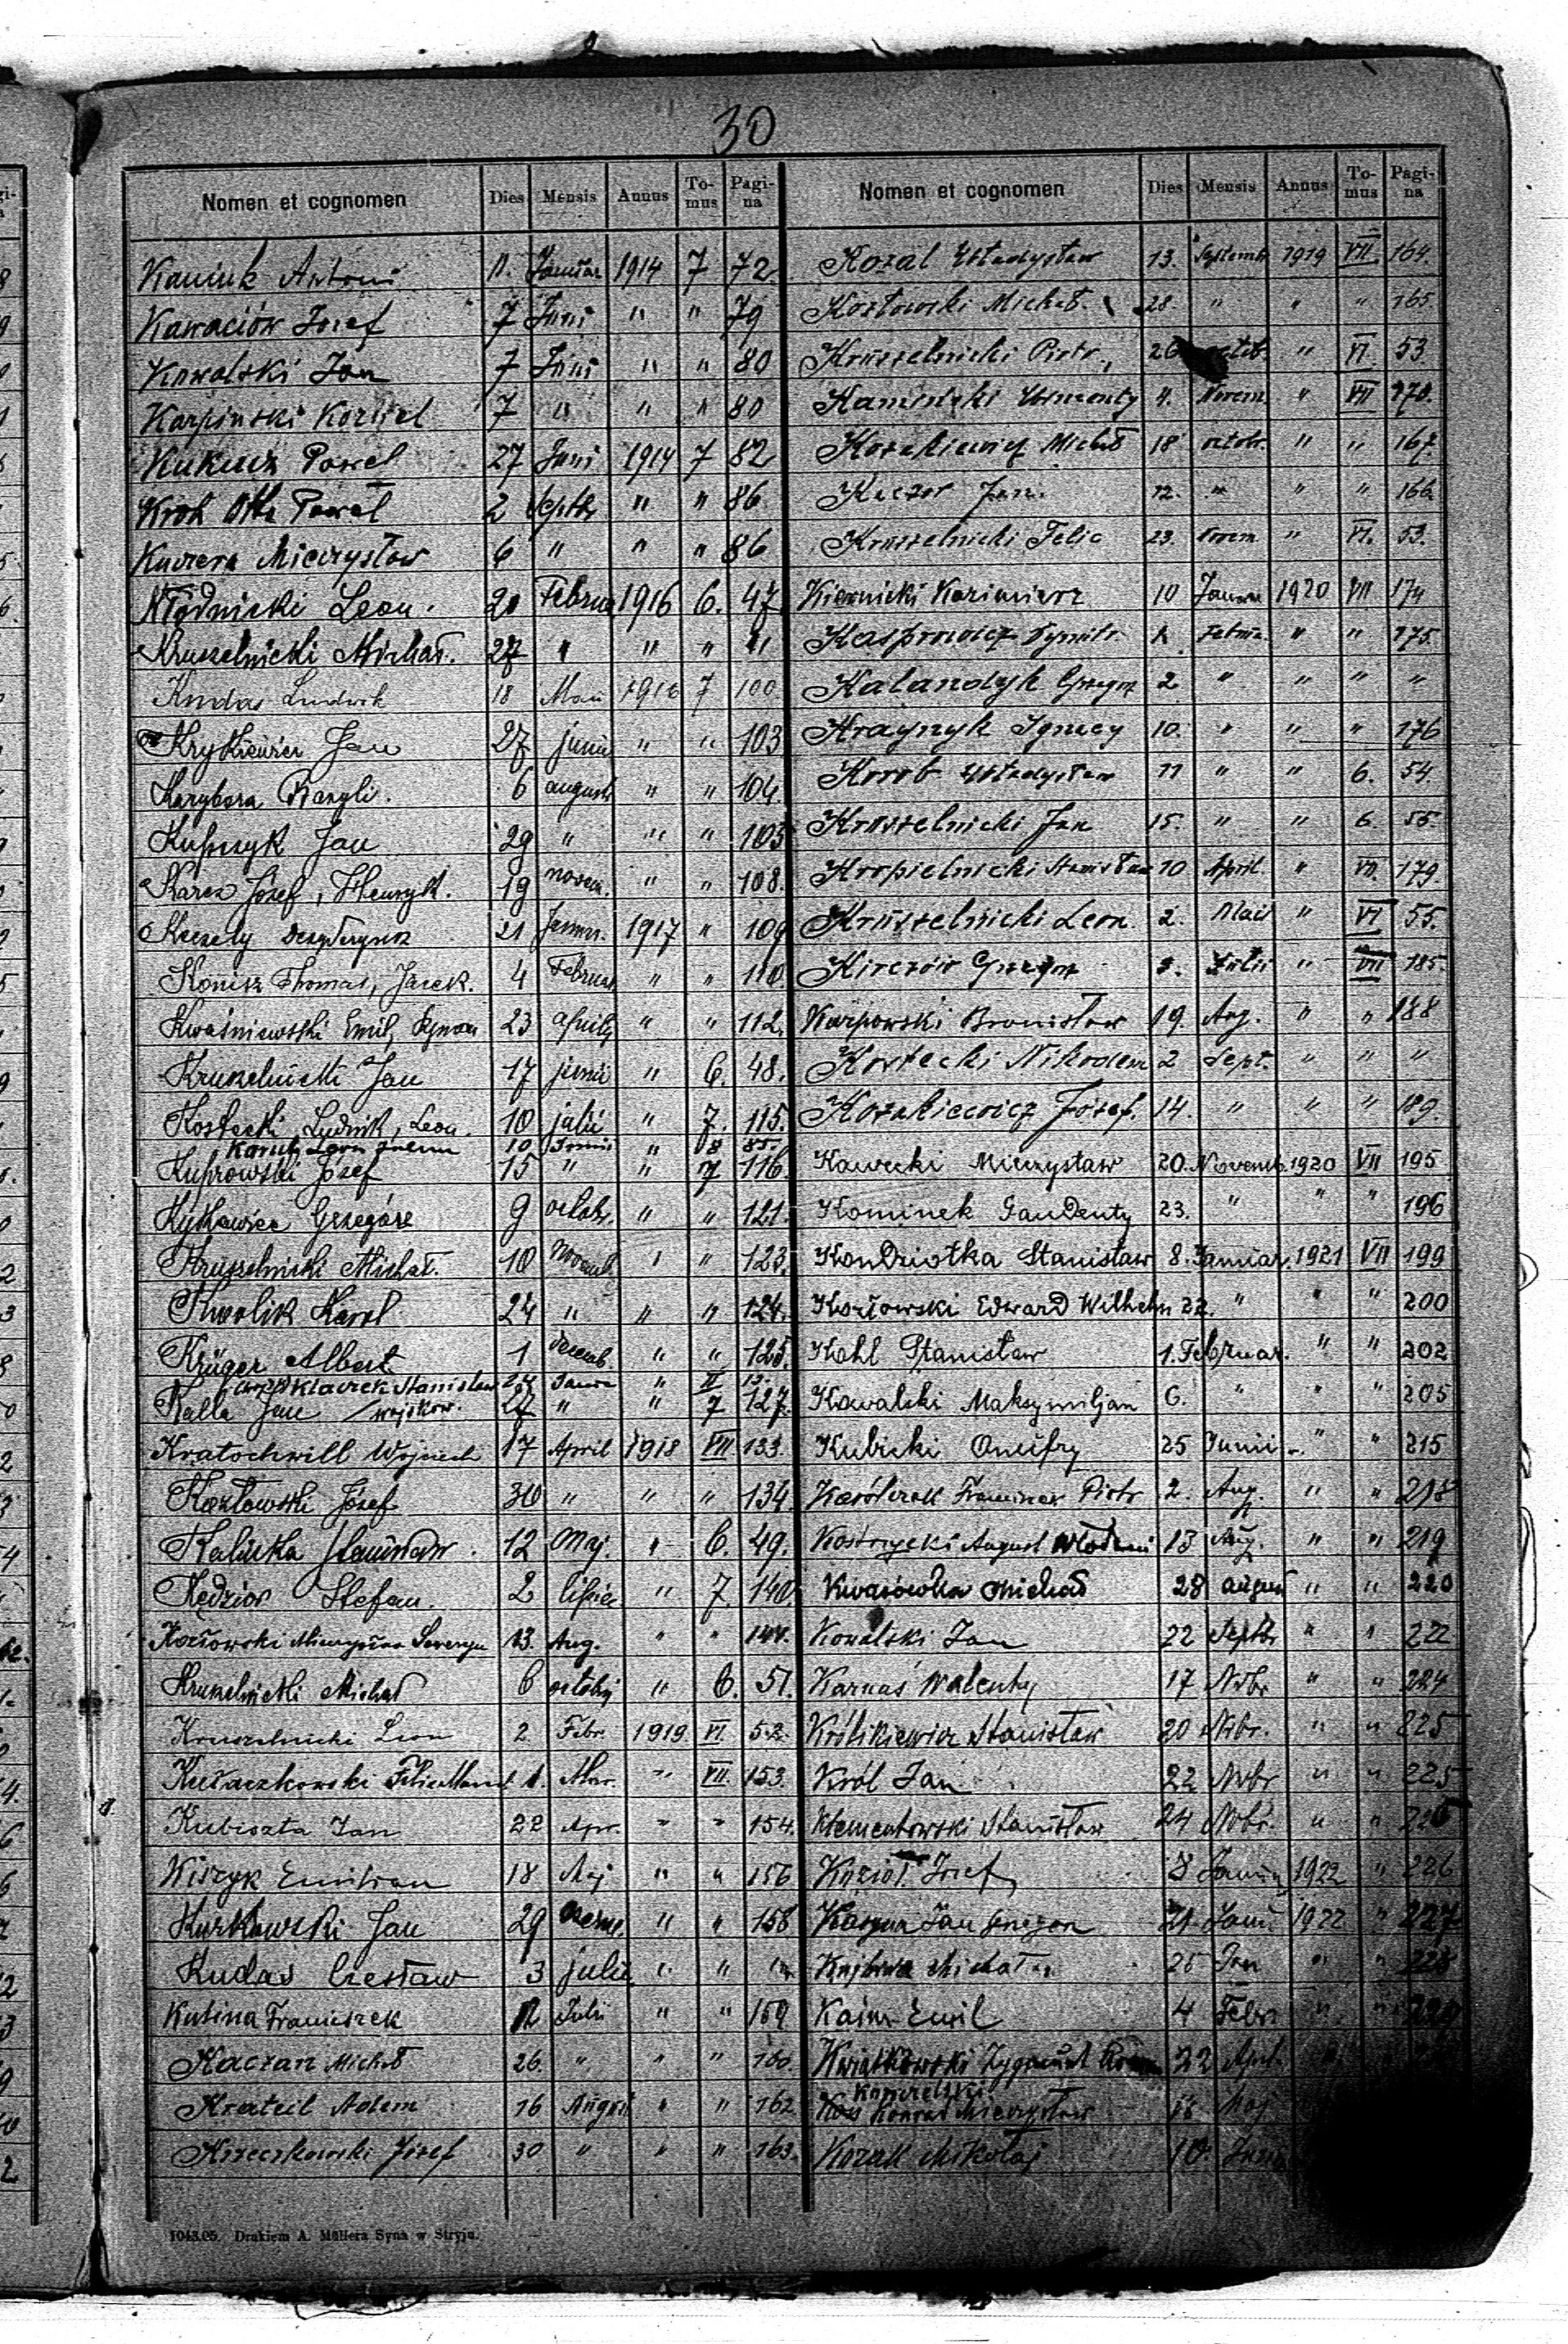 30
Nomen et cognomen Dies Mensis Annus To-mus Pagi-na
Kaniuk Antoni 11. Januar 1914 7 72
Kawaciów Josef 7 Juni " " 79
Kowalski Jan 7 Juni " " 80
Karpinski Kornel 7 " " " 80
Kukurz Pawel 27 Juni 1914 7 82
Kroh Otto Pawel 2 Septbr " " 86
Kurzera Mieczysław 6 " " " 86
Kłodnicki Leon. 20 Februar 1916 6. 47
Kruszelnicki Michał. 27 " " " "
Kudas Ludwik 18 Mai 1916 7 100
Krytkiewicz Jan 27 junii " " 103
Korybora Bazyli. 6 augusti " " 104.
Kupczyk Jan 29 " " " 105
Karcz Józef, Henryk. 19 novem. " " 108.
Kerekely Dezyderyusz 21 Januar. 1917 " 109
Konisz Thomas, Jacek. 4 Februar " " 110.
Kwaśniewski Emil, Zygmun 23 aprilis " " 112.
Kruszelnicki Jan 17 junii " 6. 48.
Kostecki Ludwik, Leon. 10 julii " 7. 115.
10 Junii " 8 85.
Kuprowski Józef 15 " " 7 116.
Kytkawiec Grzegórz 9 octobr. " " 121.
Kruszelnicki Michał. 10 Novemb " " 123.
Kwolik Karol 24 " " " 124.
Krüger Albert 1 decemb " " 125.
Klaczek Stanisław 24 " II 13.
Kalla Jan wojskow. 27 " " 7 127.
Kratochwill Wojciech 17 April 1918 VII 133.
Kozłowski Józef 30 " " " 134
Kalinka Stanisław. 12 Maj. " 6. 49.
Kędzior Stefan. 2 lipiec " 7. 140.
Kozłowski Mieczysław Seweryn 13. Aug. " " 144.
Kruszelnicki Michał 6 octobris " 6. 51.
Kruszelnicki Leon 2. Febr. 1919. VI. 52.
Kułaczkowski 1. Mar. " VII. 153.
Kubiszta Jan 22 Apr. " " 154.
Kiszyk Emilian 18 Maj " " 156
Kurkowski Jan 29 czerw. " " 158
Kudas Czesław 3 julii " "
Kusina Franciszek 12 Julii " " 159
Kaczan Michał 26. " " " 160.
Krateil Adam 16 Augusti " " 162
Krzeczkowski Józef 30 " " " 163.
1043.05. Drukiem A. Müllera Syna w Stryju.
Nomen et cognomen Dies Mensis Annus To-mus Pagi-na
Kozal Władysław 13. Septemb. 1919 VII. 164.
Kozłowski Michał. 28 " " " 165
Kruszelnicki Piotr, 26 octob. " VI. 53
Kamiński 4. Novem. " VII 170.
Kozakiewicz Michał 18 octob. " " 167.
Kaczor Jan. 12. " " " 166.
Kruszelnicki Felic 23. Novem. " VI. 53.
Kiernicki Kazimierz 10 Januar 1920 VII 174
Kasprowicz Dymitr 1. Februa. " " 175
Kalandyk Grzegorz 2 " " " "
Kraynyk Ignacy 10. " " " 176
Korob Władysław 11 " " 6. 54.
Kruszelnicki Jan 15. " " 6. 55.
Kropielnicki Stanisław 10 April. " VII. 179.
Kruszelnicki Leon 2. Maii " VI 55.
Kirczów Grzegorz 5. Julii " VII 185.
Karpowski Bronisław 19. Aug. " " 188
Kostecki Nikodem 2 Sept. " " "
Kozakiewicz Józef. 14. " " " 189.
Kawecki Mieczysław 20. Novemb. 1920 VII 195
Kominek Gaudenty 23. " " " 196
Kondziołka Stanisław 8. Januar. 1921 VII 199
Kozłowski Edward Wilhelm 22. " " " 200
Kohl Stanisław 1. Februar. " " 202
Kowalski Maksymiljan 6. " " " 205
Kubicki Onufry 25 Junii " " 215
Karólczak Piotr 2. Aug. " " 218
Kostrzycki August 13 Aug. " " 219
Kwasówka Michał 28 august " " 220
Kowalski Jan 22 Septbr " " 222
Karnaś Walenty 17 Nvbr " " 224
Królikiewicz Stanisław 20 Nvbr. " " 225
Król Jan 22 Nvbr " " 225
Klementowski Stanisław 24 Nvbr. " " 226
Kozioł Josef 8 Januar 1922 " 226
Jan 21 Janu 1922 " 227
Michał 25 Jan " " 228
Kaim Emil 4 Febr " "
Kwiatkowski Zygmunt Roman 22 April
Konrad Mieczysław Maj
Kozak Mikołaj 10.